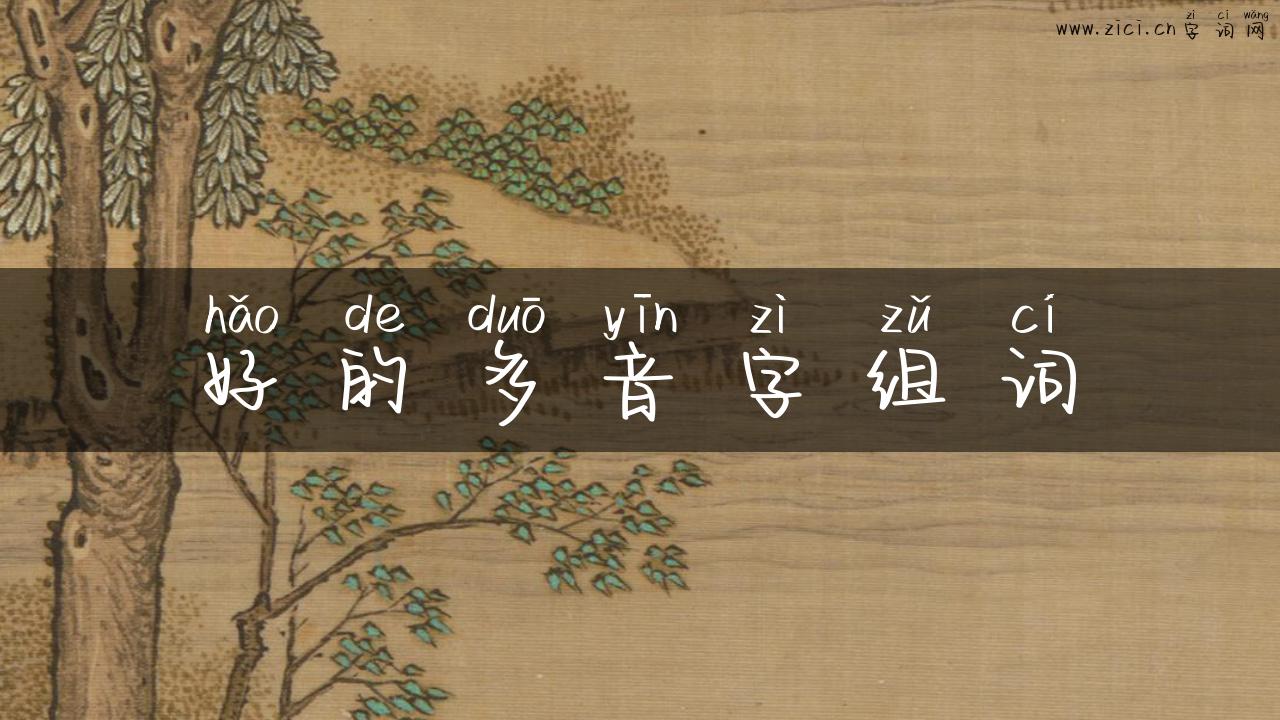 zì cí wǎng
www.zici.cn 字词网
hǎo de duō yīn zì zǔ cí
好的多音字组词